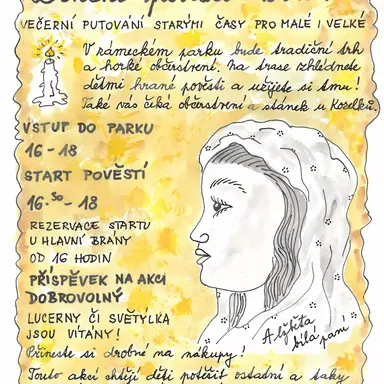 VEČERNÍ PUTOVÁNÍ STARÝMI ČASY PRO MALÉ I VELKÉ
V zámeckém parku bude tradiční trh
a horké občerstvení. Na trase zhlédnete
dětmi hrané pověsti a užijete si tmu!
Také vás čeká občerstvení a stánek u Kozelků.
VSTUP DO PARKU
16-18
START POVĚSTÍ
16.30-18
REZERVACE STARTU
U HLAVNÍ BRÁNY
OD 16 HODIN
PŘÍSPĚVEK NA AKCI
DOBROVOLNÝ
LUCERNY ČI SVĚTÝLKA
JSOU VÍTÁNY!
Přineste si drobné na nákupy!
Touto akcí chtějí děti potěšit ostatní a taky
Alžběta
bílá paní